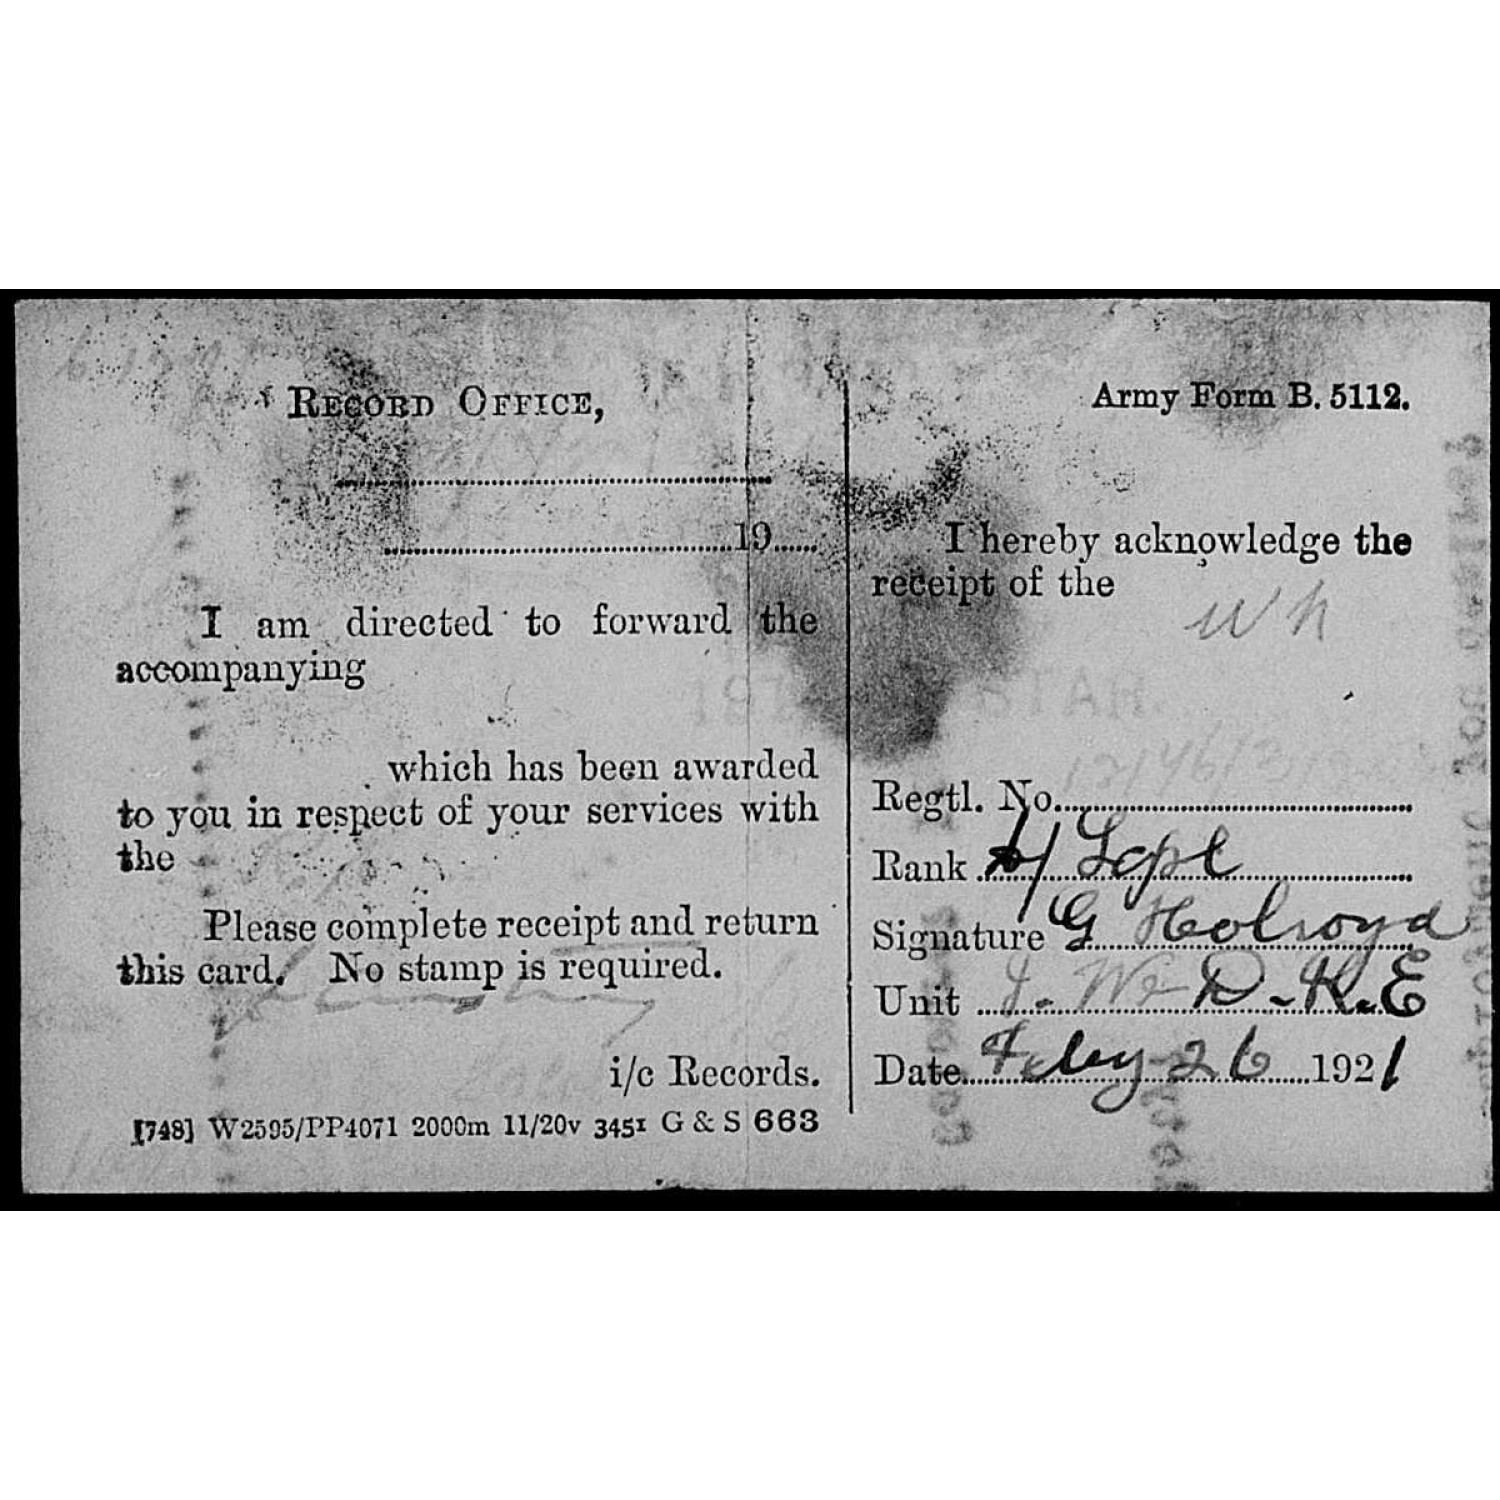 RECORD OFFICE,
19
I am directed to forward the
accompanying
which has been awarded
to you in respect of your services with
the
Please complete receipt and return
this card. No stamp is required.
i/c Records.
[748] W2595/PP4071 2000m 11/20v 3451 G & S 663
Army Form B. 5112.
I hereby acknowledge the
receipt of the
Regtl. No.
Rank
Signature G Holroyd
Unit
Date Feby 26 1921